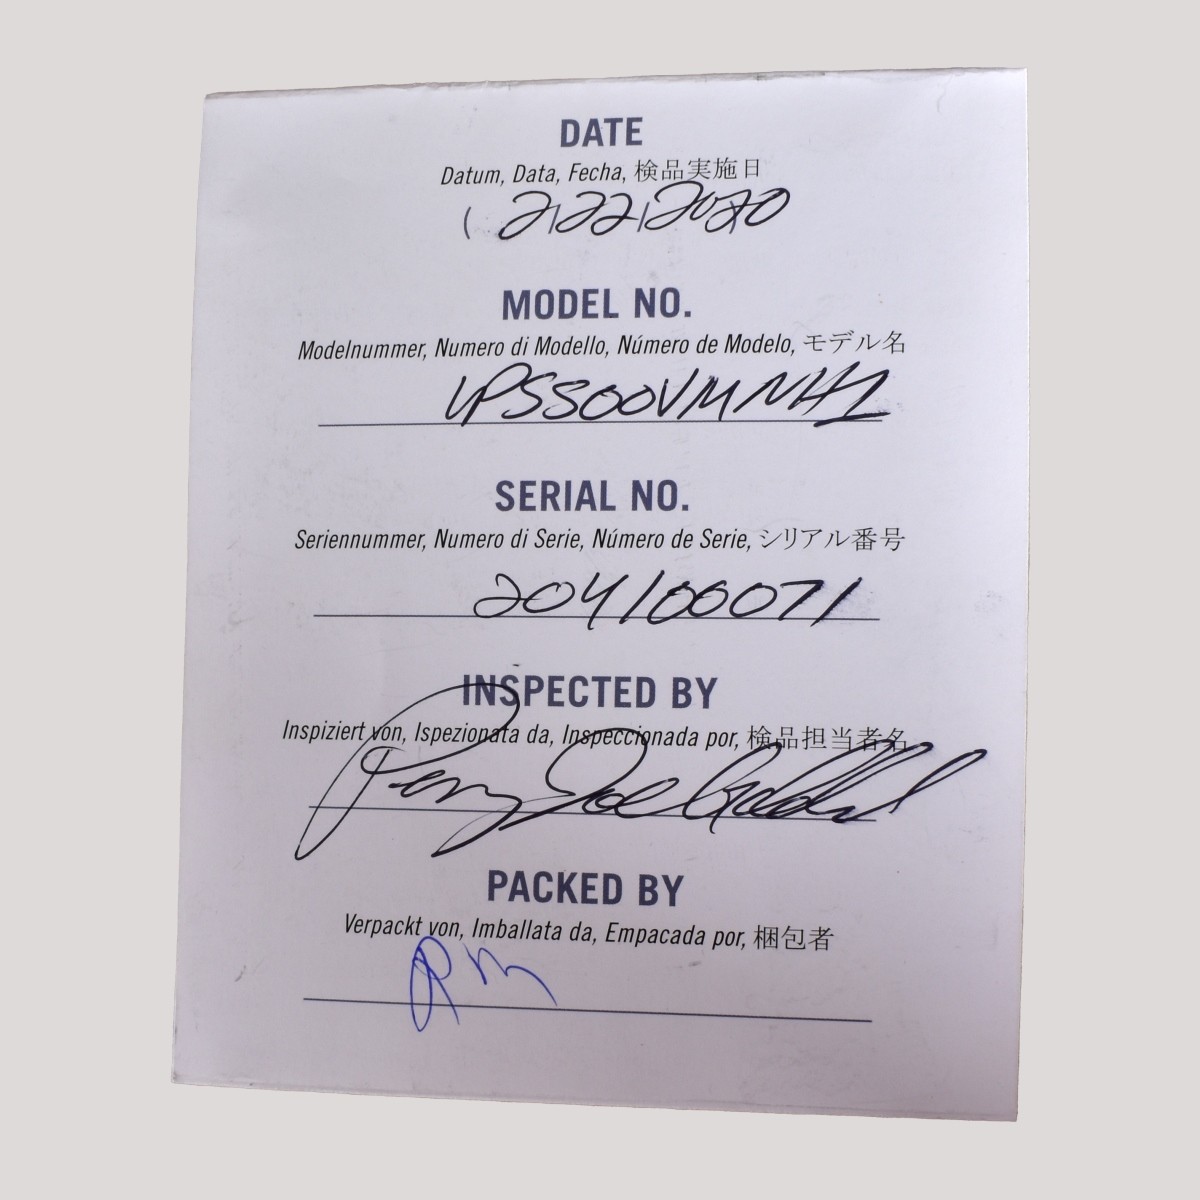 DATE
Datum, Data, Fecha, 検品実施日
2/22/2020
MODEL NO.
Modelnummer, Numero di Modello, Número de Modelo, モデル名
LPSS00VMNH1
SERIAL NO.
Seriennummer, Numero di Serie, Número de Serie, シリアル番号
204100071
INSPECTED BY
Inspiziert von, Ispezionata da, Inspeccionada por, 検品担当者名
PACKED BY
Verpackt von, Imballata da, Empacada por, 梱包者